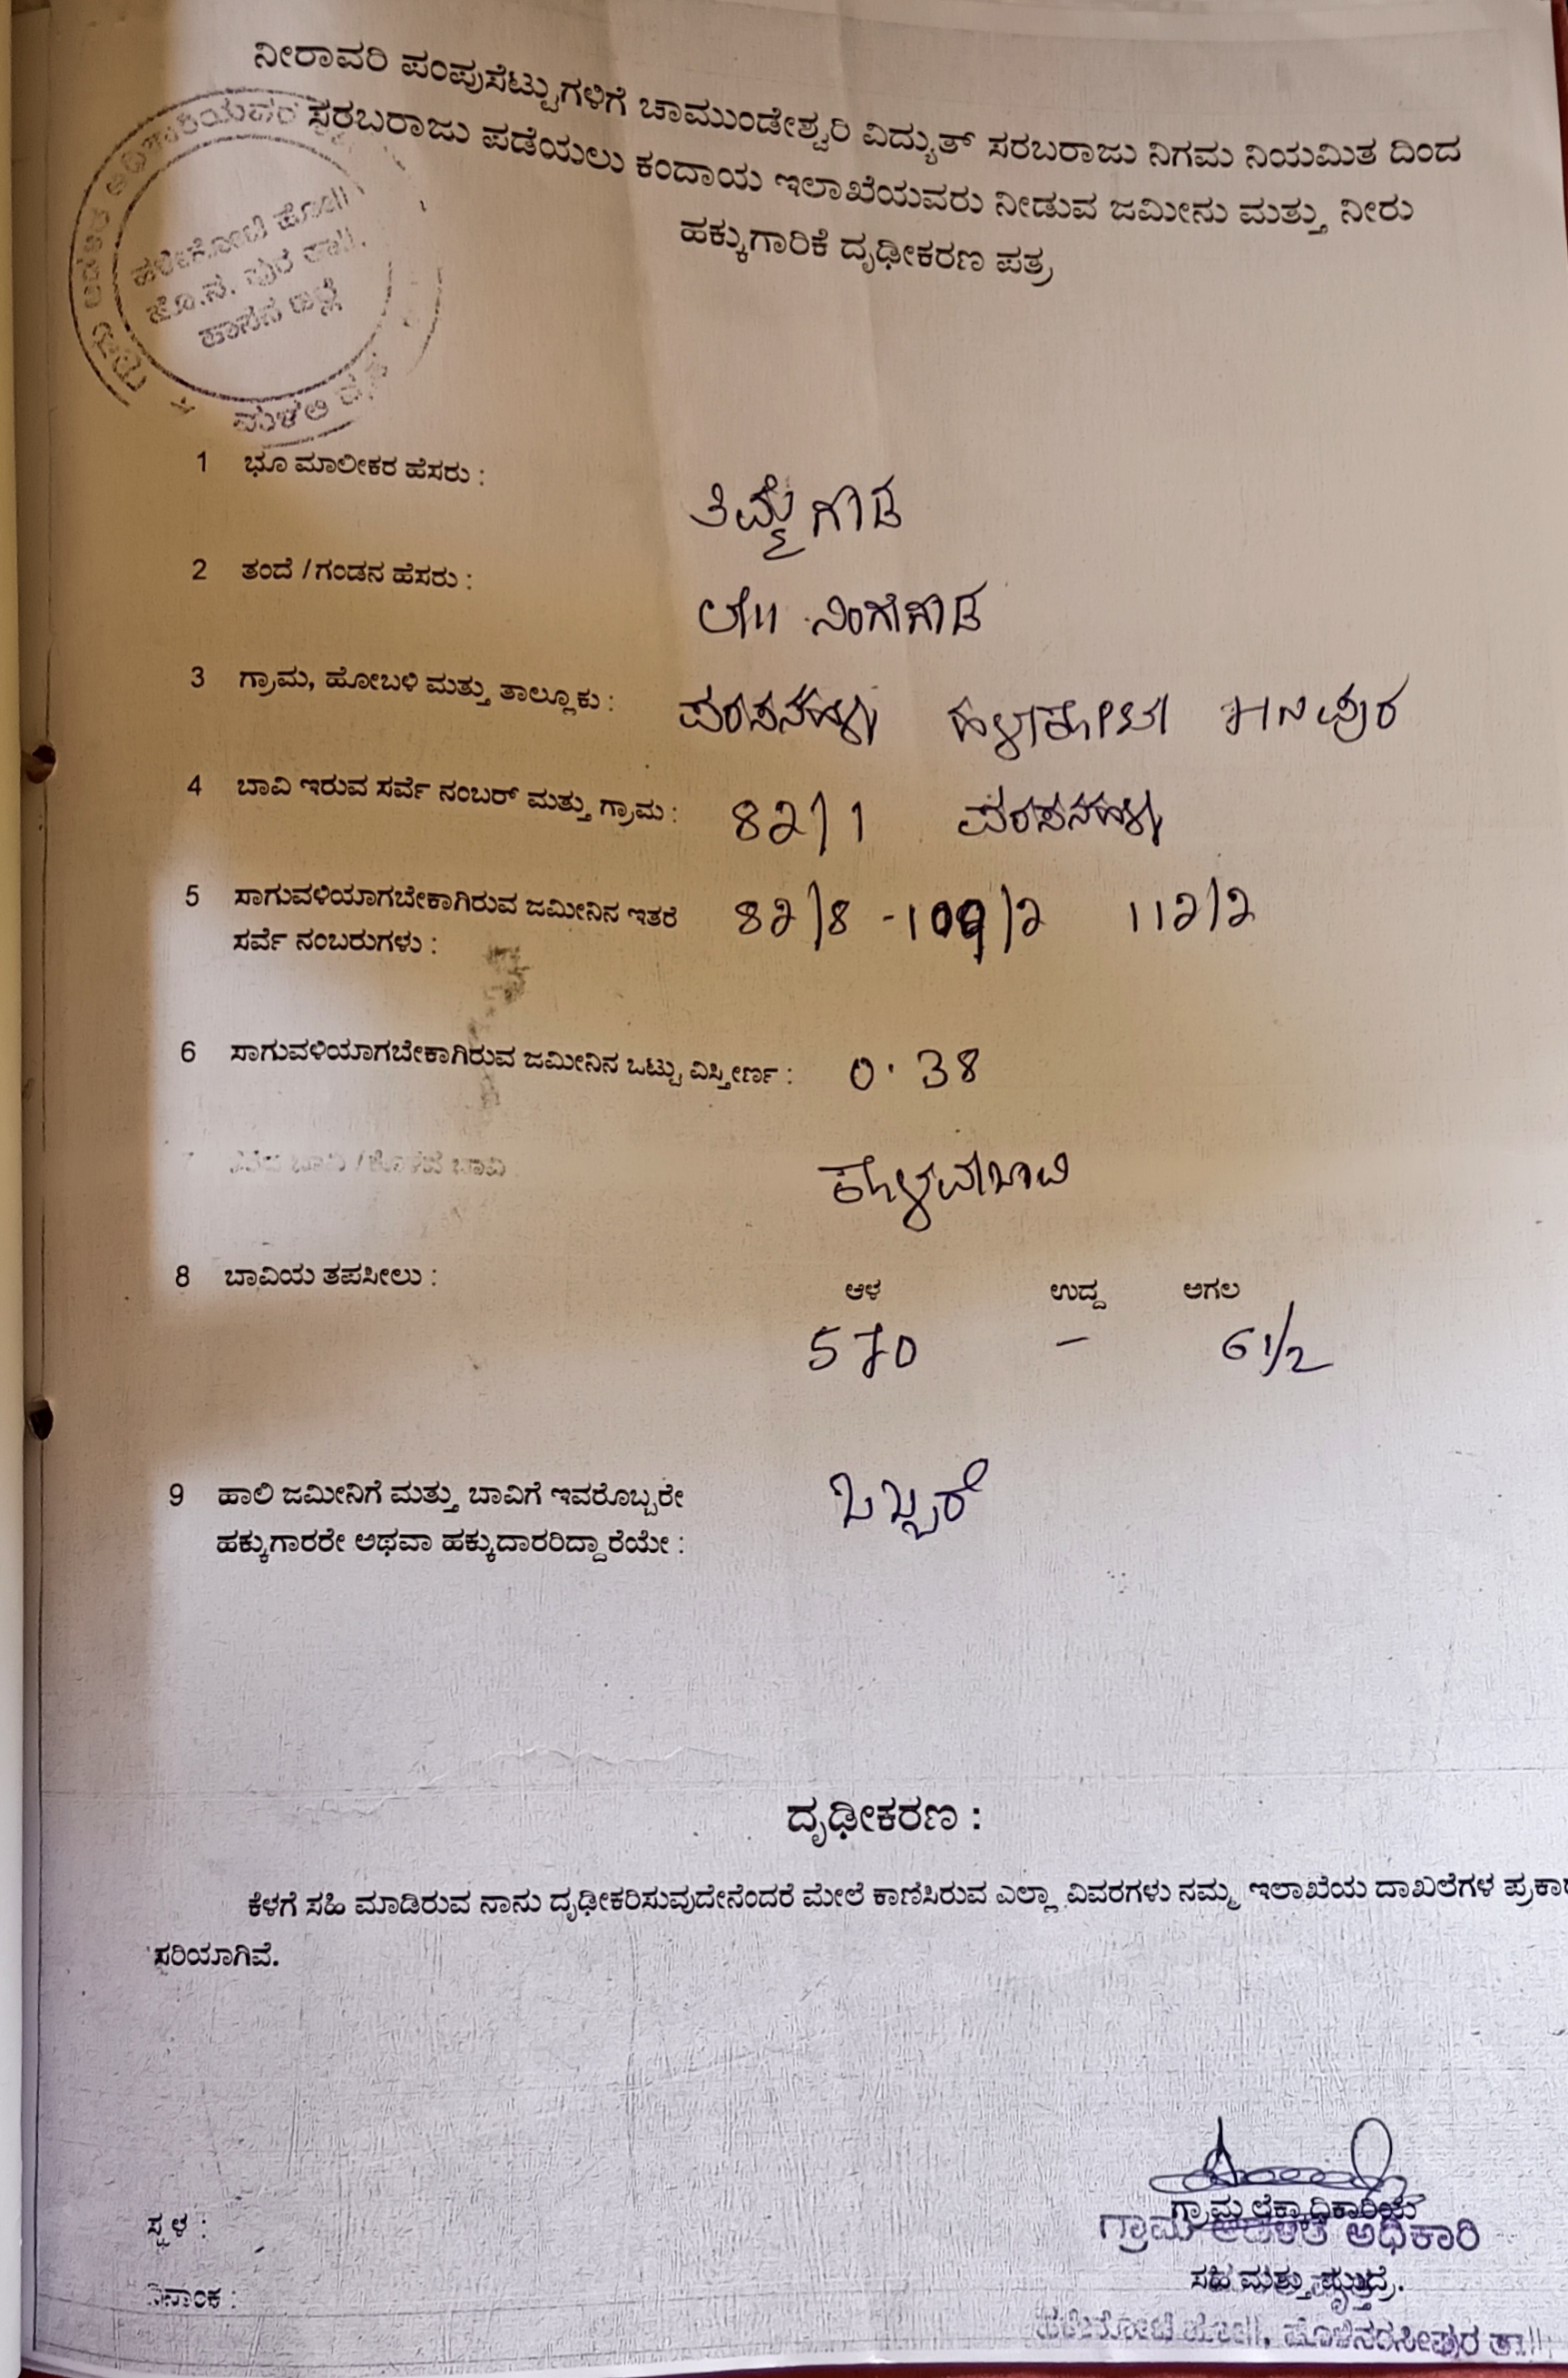 ನೀರಾವರಿ ಪಂಪುಸೆಟ್ಟುಗಳಿಗೆ ಚಾಮುಂಡೇಶ್ವರಿ ವಿದ್ಯುತ್ ಸರಬರಾಜು ನಿಗಮ ನಿಯಮಿತ ದಿಂದ
ಸರಬರಾಜು ಪಡೆಯಲು ಕಂದಾಯ ಇಲಾಖೆಯವರು ನೀಡುವ ಜಮೀನು ಮತ್ತು ನೀರು
ಹಕ್ಕುಗಾರಿಕೆ ದೃಢೀಕರಣ ಪತ್ರ
ಹಳೇಕೋಟೆ ಹೋ||
ಹೊ.ನ. ಪುರ ತಾ||.
ಹಾಸನ ಜಿಲ್ಲೆ
1 ಭೂ ಮಾಲೀಕರ ಹೆಸರು : ತಿಮ್ಮೇಗೌಡ
2 ತಂದೆ / ಗಂಡನ ಹೆಸರು : ಲೇ|| ನಿಂಗೇಗೌಡ
3 ಗ್ರಾಮ, ಹೋಬಳಿ ಮತ್ತು ತಾಲ್ಲೂಕು : ಪರಸನಹಳ್ಳಿ ಹಳೇಕೋಟೆ ಹನಪುರ
4 ಬಾವಿ ಇರುವ ಸರ್ವೆ ನಂಬರ್ ಮತ್ತು ಗ್ರಾಮ : 82/1 ಪರಸನಹಳ್ಳಿ
5 ಸಾಗುವಳಿಯಾಗಬೇಕಾಗಿರುವ ಜಮೀನಿನ ಇತರೆ 82/8 - 109/2 112/2
ಸರ್ವೆ ನಂಬರುಗಳು :
6 ಸಾಗುವಳಿಯಾಗಬೇಕಾಗಿರುವ ಜಮೀನಿನ ಒಟ್ಟು ವಿಸ್ತೀರ್ಣ : 0.38
ಬಾವಿ / ಕೊಳವೆ ಬಾವಿ ಕೊಳವೆಬಾವಿ
8 ಬಾವಿಯ ತಪಸೀಲು :
ಆಳ ಉದ್ದ ಅಗಲ
570 - 6 1/2
9 ಹಾಲಿ ಜಮೀನಿಗೆ ಮತ್ತು ಬಾವಿಗೆ ಇವರೊಬ್ಬರೇ ಒಬ್ಬರೆ
ಹಕ್ಕುಗಾರರೇ ಅಥವಾ ಹಕ್ಕುದಾರರಿದ್ದಾರೆಯೇ :
ದೃಢೀಕರಣ :
ಕೆಳಗೆ ಸಹಿ ಮಾಡಿರುವ ನಾನು ದೃಢೀಕರಿಸುವುದೇನೆಂದರೆ ಮೇಲೆ ಕಾಣಿಸಿರುವ ಎಲ್ಲಾ ವಿವರಗಳು ನಮ್ಮ ಇಲಾಖೆಯ ದಾಖಲೆಗಳ ಪ್ರಕಾರ
ಸರಿಯಾಗಿವೆ.
ಗ್ರಾಮ ಲೆಕ್ಕಾಧಿಕಾರಿಯ
ಸ್ಥಳ : ಗ್ರಾಮ ಆಡಳಿತ ಅಧಿಕಾರಿ
ಸಹಿ ಮತ್ತು ಮುದ್ರೆ.
ದಿನಾಂಕ :
ಹಳೇಕೋಟೆ ಹೋ||, ಹೊಳೆನರಸೀಪುರ ತಾ||